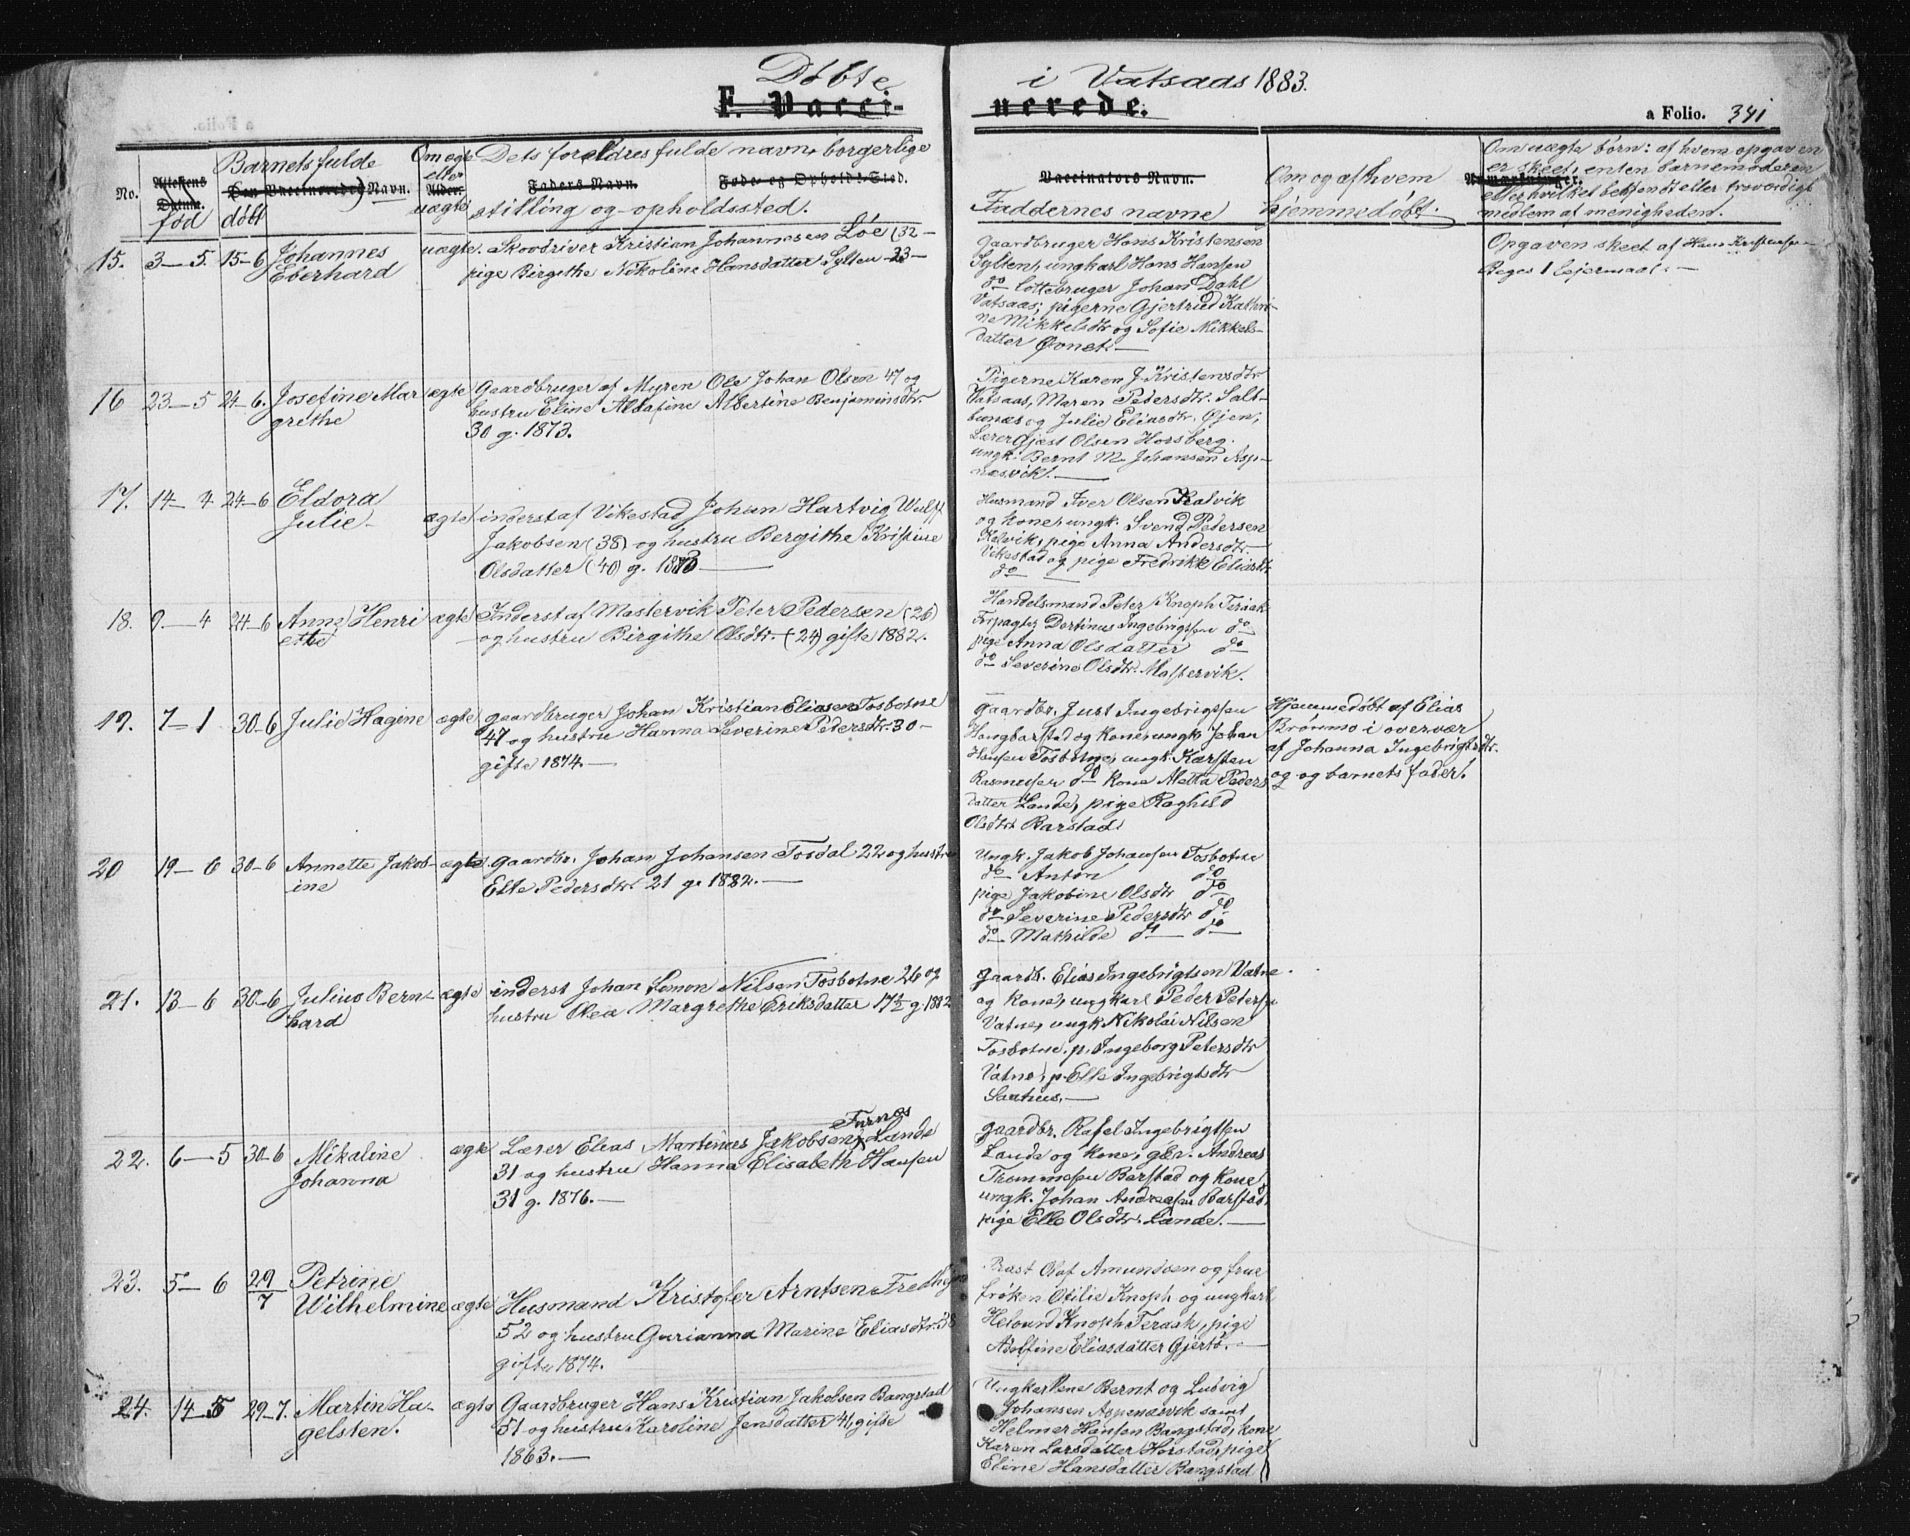 Döbte i Vatsaas 1883.
F. Vacci- nerede.
a Folio. 341
No.
Attestens Datum.
född
Barnets fulde
Den Vaccineredes Navn.
döbt
Om ægte
eller
Alder.
uægte
Dets forældres fulde navn, borgerlige
Faders Navn. Føde- og Opholds-Sted.
stilling og opholdssted.
Vaccinators Navn.
Faddernes navne
Om og af hvem
hjemmedöbt.
Om uægte börn: af hvem opgaven
er skeet, enten barnemoderen
Anmærkninger.
eller hvilket bekjendt eller troværdigt
medlem af menigheden.
15. 3—5. 15-6 Johannes
Eberhard
uægte. Skovdriver Kristian Johannesen Löe (32—
pige Birgithe Nikoline Hansdatter Sylten 23—
Gaardbruger Hans Kristensen
Sylten, ungkarl Hans Hansen
do lottebruger Johan Dahl
Vatsaas; pigerne Gjertrud Kathri-
ne Mikkelsdtr og Sofie Mikkels-
datter Övnet.—
Opgaven skeet af Hans Kristensen
Beges 1 lejermaal.—
16 23—5 24-6. Josefine Mar
grethe
ægte Gaardbruger af Myren Ole Johan Olsen 47 og
hustru Eline Adsafine Albertine Benjaminsdtr
30 g. 1873.
Pigerne Karen J. Kristensdtr
Vatsaas, Maren Pedersdtr. Salt-
bunæs og Julie Eliasdtr. Öjen,
Lærer Gjæst Olsen Horsberg.
ungk. Bernt M. Johansen Asp-
næsvik.—
17. 14—4 24-6 Eldora
Julie-
ægte inderst af Vikestad Johan Hartvig Wulff
Jakobsen (38) og hustru Bergithe Kristine
Olsdatter (40) g. 1873—
Husmand Iver Olsen Kalvik
og kone, ungk. Svend Pedersen
Kalvik, pige Anna Andersdtr
Vikestad og pige Fredrikke Eliasdtr
do —
18. 9.—4 24-6 Anne Henri
ette
ægte Inderst af Mastervik Peter Pedersen (26)
og hustru Birgithe Olsdtr. (24) gifte 1882.
Handelsmand Peter Knoph Teraak
Forpagter Dertinus Ingebrigtsen do
pige Anna Olsdatter do
do Severine Olsdtr. Mastervik.
19. 7—1 30-6 Julie Hagine ægte gaardbruger Johan Kristian Eliasen Tosbotne
47 og hustru Hanna Severine Pedersdtr. 30—
gifte 1874.—
gaardbr. Just Ingebrigtsen
Hongbarstad og kone, ungk. Johan
Hansen Tosbotne, ungk. Karsten
Rasmussen do kone Aletta Peders
datter Lande, pige Raghild
Olsdtr Barstad.
Hjemmedöbt af Elias
Brönmo i overvær
af Johanna Ingebrigtsdtr.
og og barnets fader.
20 19—6 30-6 Annette Jakob-
ine
ægte. gaardbr. Johan Johansen Tosdal 22 og hustru
Else Pedersdtr. 21 g. 1882.—
Ungk. Jakob Johansen Tosbotne
do Anton do
pige Jakobine Olsdtr do
do Severine Pedersdtr do
do Mathilde do do
21. 13—6 30-6 Julius Bern-
hard
ægte inderst Johan Simon Nilsen Tosbotne 26 og
hustru Olea Margrethe Eriksdatter 17½ g. 1882
gaardb. Elias Ingebrigtsen Vatne.
og kone, ungkarl Peder Petersen
Vatne, ungk Nikolai Nilsen
Tosbotne. p. Ingeborg Petersdtr
Vatne, p. Elle Ingebrigtsdtr
Saxhus.—
22. 6—5 30-6 Mikaline
Johanna
ægte Lærer Elias Martinus Jakobsen, Lande
Furnæs
31 og hustru Hanna Elisabeth Hansen
31 g. 1876.—
gaardbr. Rafel Ingebrigtsen
Lande og kone, gbr. Andreas
Trommesen Barstad og kone,
ungk. Johan Andreasen Barstad,
pige Elle Olsdtr. Lande.—
23. 5—6 29/7 Petrine
Wilhelmine ægte Husmand Kristofer Arntsen Fredheim
52 og hustru Gurianna Marine Eliasdtr. 38
gifte 1874.
Præst Olaf Amundsen og frue
fröken Otilie Knoph og ungkarl
Knoph Teraak, pige
Adolfine Eliasdatter Gjertö.—
24. 14—5 29-7. Martin Ha-
gelsten.
ægte Gaardbruger Hans Kristian Jakobsen Bangstad
51 og hustru Karoline Jensdatter 41, gifte
1863.—
Ungkarlene Bernt og Ludvig
Johansen Aspenæsvik samt
Helmer Hansen Bangstad, kone
Karen Larsdatter Horstad, pige
Eline Hansdatter Bangstad